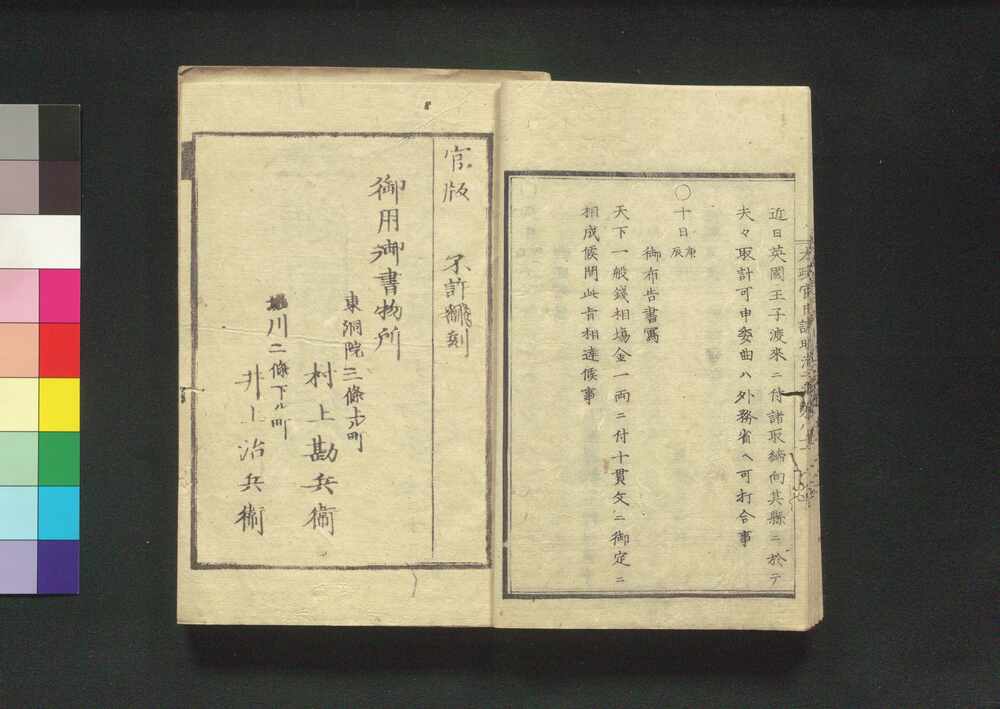 近日英國王子渡來ニ付諸取締向其縣ニ於テ
夫々取計可申委曲ハ外務省ヘ可打合事
〇十日庚辰
御布告書寫
天下一般錢相塲金一兩ニ付十貫文ニ御定ニ
相成候間此旨相達候事
官版 不許飜刻
御用御書物所
東洞院三條上ル町
村上勘兵衞
堀川二條下ル町
井上治兵衞